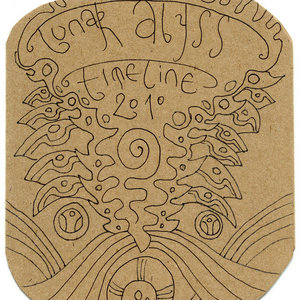 tonal abyss
timeline
2010